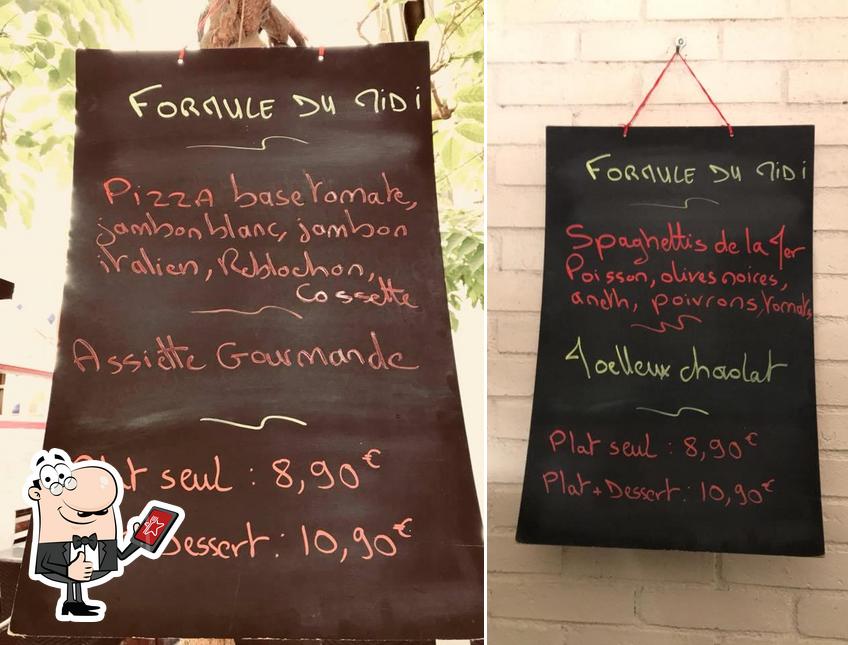 FORMULE DU MIDI
PIZZA base tomate,
jambon blanc, jambon
italien, Reblochon,
Cossette
Assiette Gourmande
Plat seul : 8,90€
Dessert : 10,90€
FORMULE DU MIDI
Spaghettis de la Mer
Poisson, olives noires,
aneth, poivrons, tomate
Moelleux chaolat
Plat seul : 8,90€
Plat + Dessert : 10,90€